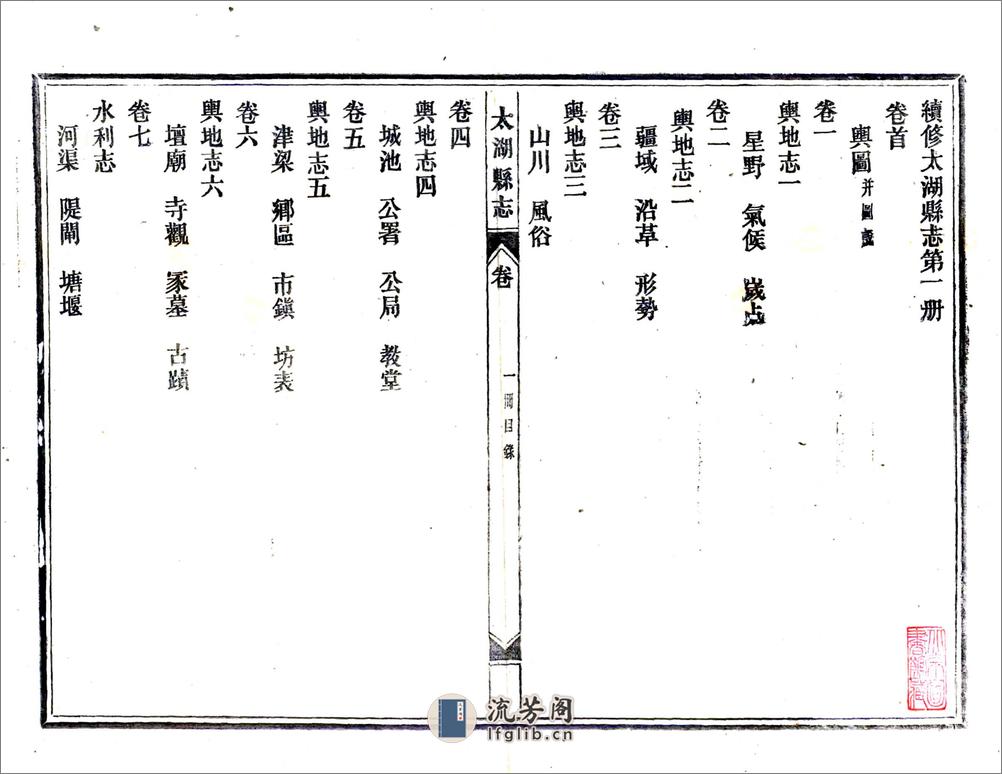 續修太湖縣志第一册
卷首
輿圖 并圖說
卷一
輿地志一
星野 氣候 歲占
卷二
輿地志二
疆域 沿革 形勢
卷三
輿地志三
山川 風俗
太湖縣志
卷
一冊目錄
卷四
輿地志四
城池 公署 公局 教堂
卷五
輿地志五
津梁 鄉區 市鎮 坊表
卷六
輿地志六
壇廟 寺觀 冢墓 古蹟
卷七
水利志
河渠 隄閘 塘堰
流芳阁
lfglib.cn